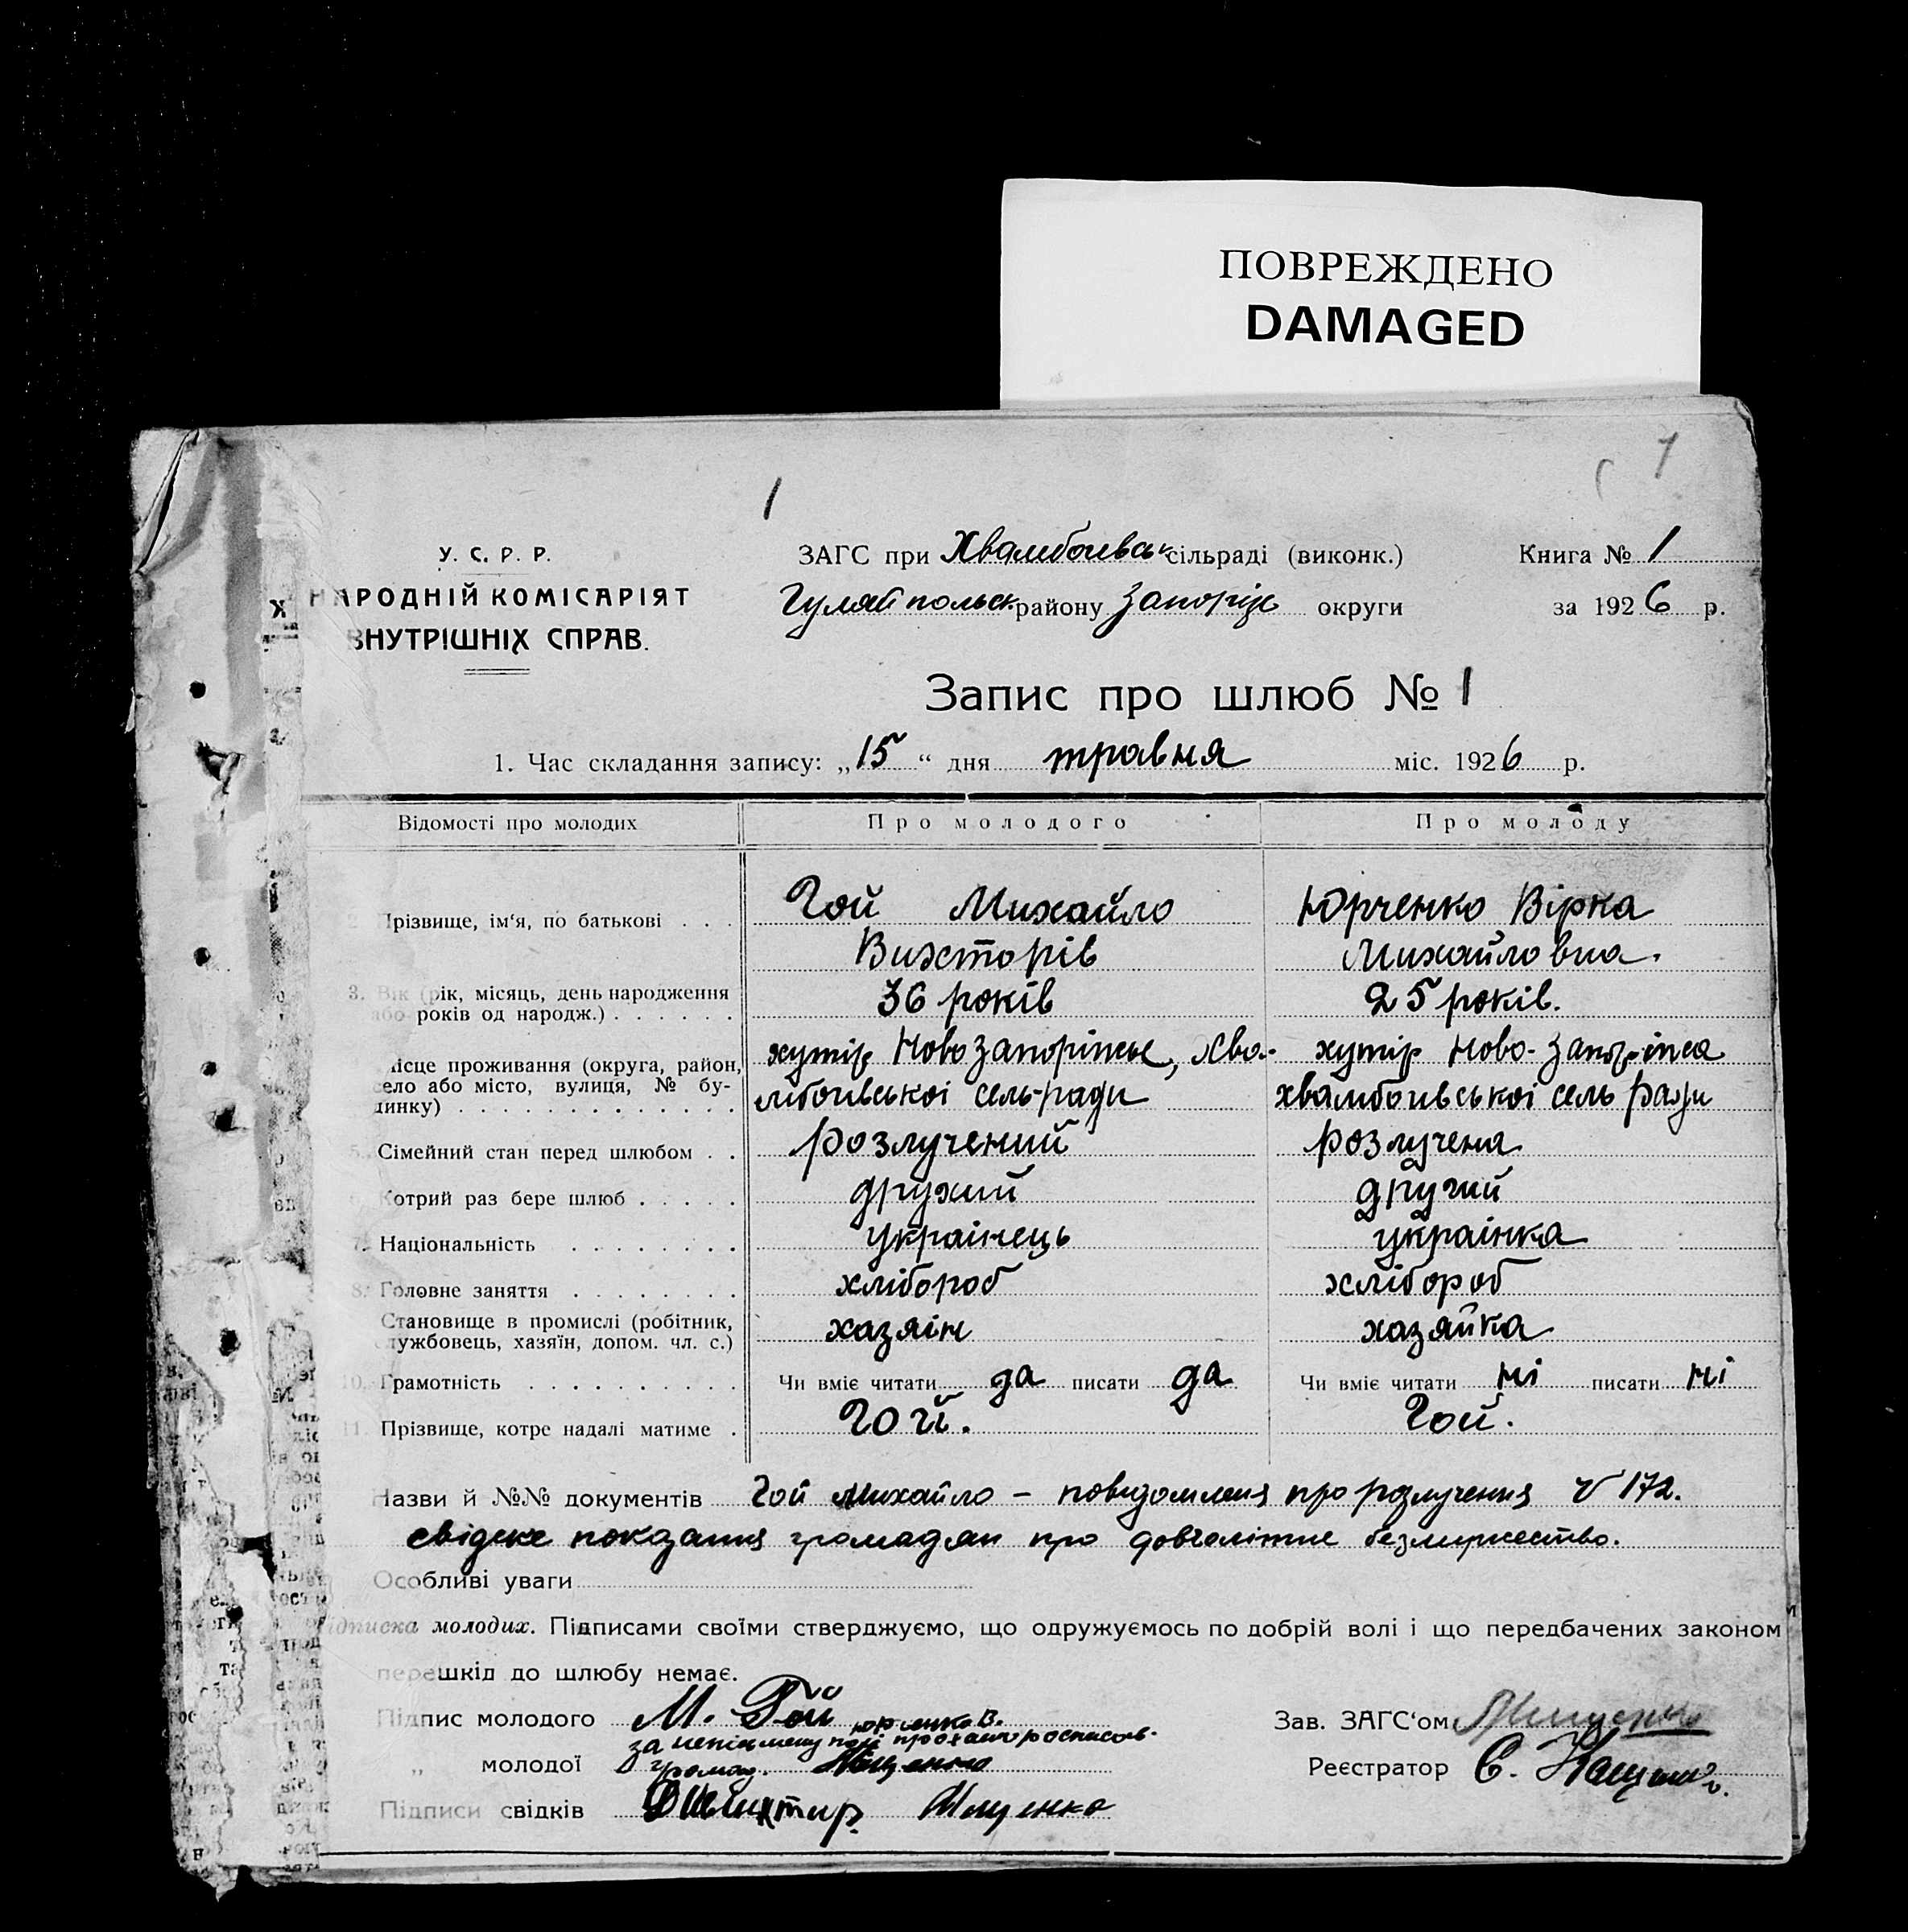 ПОВРЕЖДЕНО
DAMAGED
1
1
У. С. Р. Р.
НАРОДНІЙ КОМІСАРІЯТ
ВНУТРІШНІХ СПРАВ.
ЗАГС при Хвамбоивськ сільраді (виконк.)
Гуляйпольськ району Запоріж округи
Книга № 1
за 1926 р.
Запис про шлюб № 1
1. Час складання запису: „15“ дня травня міс. 1926 р.
Відомості про молодих Про молодого Про молоду
2. Прізвище, ім‘я, по батькові . . . Гой Михайло Юрченко Вірка
Вихторів Михайловна.
3. Вік (рік, місяць, день народження 36 років 25 років.
або років од народж.) . . . . . .
місце проживання (округа, район, хутір Ново Запоріжье, Хва- хутір Ново-Запоріжа
село або місто, вулиця, № бу- мбоивськоі сель-ради хвамбоивськоі сель ради
динку) . . . . . . . . . . . . .
5. Сімейний стан перед шлюбом . . розлучений розлучена
6. Котрий раз бере шлюб . . . . . друхий другий
7. Національність . . . . . . . . украінець украінка
8. Головне заняття . . . . . . . . хлібороб хлібороб
Становище в промислі (робітник, хазяін хазяйка
службовець, хазяїн, допом. чл. с.)
10. Грамотність . . . . . . . . . . Чи вміє читати да писати да Чи вміє читати ні писати ні
11. Прізвище, котре надалі матиме . Гой. Гой.
Назви й №№ документів Гой Михайло – повидомленя про розлученя № 172.
свідске показаня громадян про довголітне безмужество.
Особливі уваги
Підписка молодих. Підписами своїми стверджуємо, що одружуємось по добрій волі і що передбачених законом
перешкід до шлюбу немає.
Підпис молодого М. Гой
Юрченко В.
за неписьмену
„ молодої громад.
Підписи свідків Мищенко
Зав. ЗАГС‘ом
Реєстратор С.